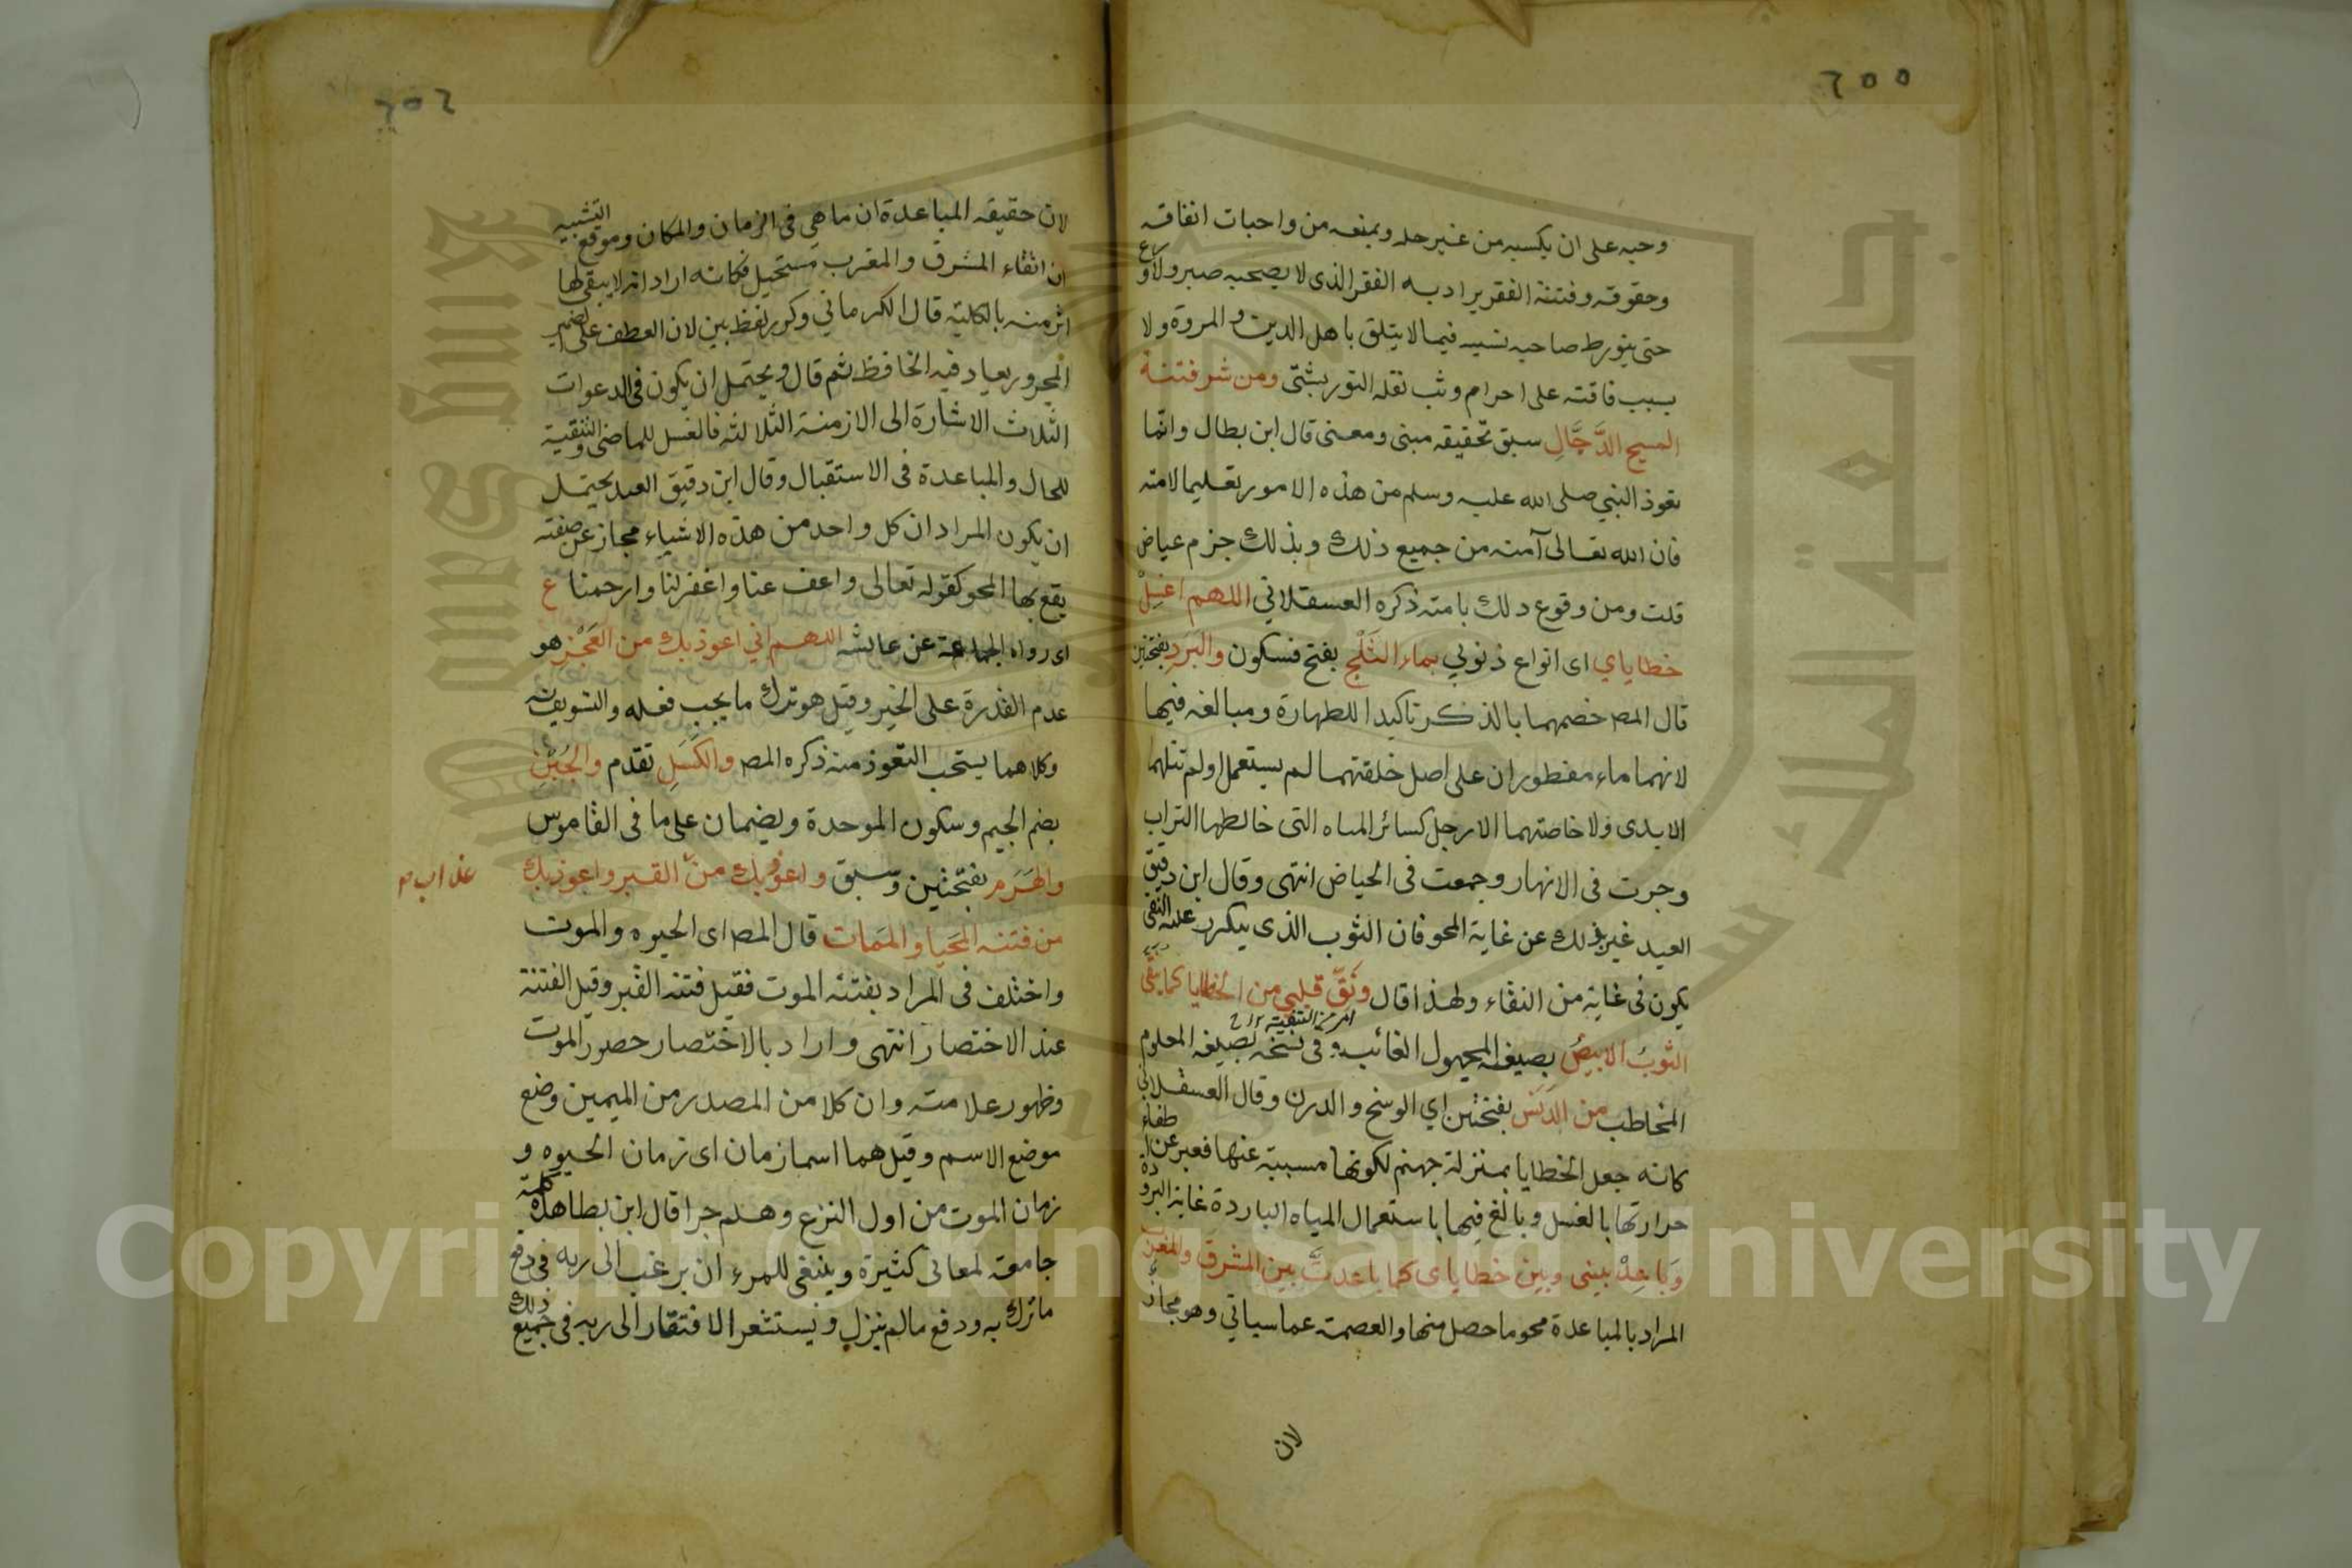 ٦٥٥
وحبه على ان يكسبه من غير حله ويمنعه من واجبات انفاقه
وحقوقه وفتنة الفقر يراد به الفقر الذى لا يصحبه صبر ولا ورع
حتى يتورط صاحبه بسببه فيما لا يتلق باهل الدين والمروة ولا
بسبب فاقته على احرام وثب نقله التوربشتى ومن شر فتنة
المسيح الدَّجَّالِ سبق تحقيقه مبنى ومعنى قال ابن بطال وانما
تعوذ النبي صلى الله عليه وسلم من هذه الامور تعليما لامته
فان الله تعالى آمنه من جميع ذلك وبذلك جزم عياض
قلت ومن وقوع دلك بامته ذكره العسقلاني اللهم اغسِلْ
خطاياي اى انواع ذنوبي بماء الثَلْجِ بفتح فسكون والبَرَدِ بفتحتين
قال المص خصهما بالذكر تاكيدا للطهارة ومبالغه فيها
لانهما ماء مفطوران على اصل خلقتهما لم يستعمل ولم تنلهما
الايدى ولا خاضتهما الارجل كسائر المياه التى خالطها التراب
وجرت فى الانهار وجمعت فى الحياض انتهى وقال ابن دقيق
العيد غير بذلك عن غاية المحو فان الثوب الذى يتكرر عليه النقى
يكون فى غاية من النقاء ولهذا قال ونَقِّ قلبي من الخطايا كما ينَقى
امر من التنقية
الثوبُ الابيضُ بصيغه المجهول الغائب وفى نسخه بصيغه المعلوم
المخاطب من الدَنَسِ بفتحتين اي الوسخ والدرن وقال العسقلانى
كانه جعل الخطايا بمنزلة جهنم لكونها مسببة عنها فعبر عن اطفاء
حرارتها بالغسل وبالغ فيها باستعمال المياه الباردة غاية البرودة
وَبَاعِدْ بينى وبين خطاياى كما باعدتَّ بين المشرق والمغرب
المراد بالمباعدة محو ما حصل منها والعصمة عما سياتي وهو مجاز
لان
٦٥٦
لان حقيقه المباعدة ان ما هى فى الزمان والمكان وموقع التشبيه
ان التقاء المشرق والمغرب مستحيل فكانه اراد انه لا يبقى لها
اثر منه بالكلية قال الكرماني وكرر لفظ بين لان العطف على الضمير
المجرور يعاد فيه الخافظ ثم قال ويحتمل ان يكون فى الدعوات
الثلاث الاشارة الى الازمنة الثلاثه فالغسل للماضى والتنقية
للحال والمباعدة فى الاستقبال وقال ابن دقيق العيد يحتمل
ان يكون المراد ان كل واحد من هذه الاشياء مجاز عن صفته
يقع بها المحو كقوله تعالى واعف عنا واغفر لنا وارحمنا ع
اى رواه الجماعة عن عايشه اللهم اني اعوذ بك من العَجْزِ هو
عدم القدرة على الخير وقيل هو ترك ما يجب فعله والتسويف به
وكلاهما يستحب التعوذ منه ذكره المص والكَسَلِ تقدم والجُبْنِ
بضم الجيم وسكون الموحدة ويضمان على ما فى القاموس
والهَرَم بفتحتين وسبق واعوذ بك من القبر واعوذ بك
عذاب م
من فتنه المَحيا والمَمات قال المص اى الحيوه والموت
واختلف فى المراد بفتنه الموت فقيل فتنه القبر وقيل الفتنة
عند الاختصار انتهى واراد بالاختصار حصور الموت
وظهور علامته وان كلا من المصدر من الميمين وضع
موضع الاسم وقيل هما اسما زمان اى زمان الحيوه و
زمان الموت من اول النزع وهلم جرا قال ابن بطا هذه كلمة
جامعة لمعانى كثيرة وينبغى للمرء ان يرغب الى ربه فى دفع
ما نزل به ودفع ما لم ينزل ويستشعر الافتقار الى ربه فى جميع ذلك
جامعة الملك سعود
King Saud University
Copyright © King Saud University